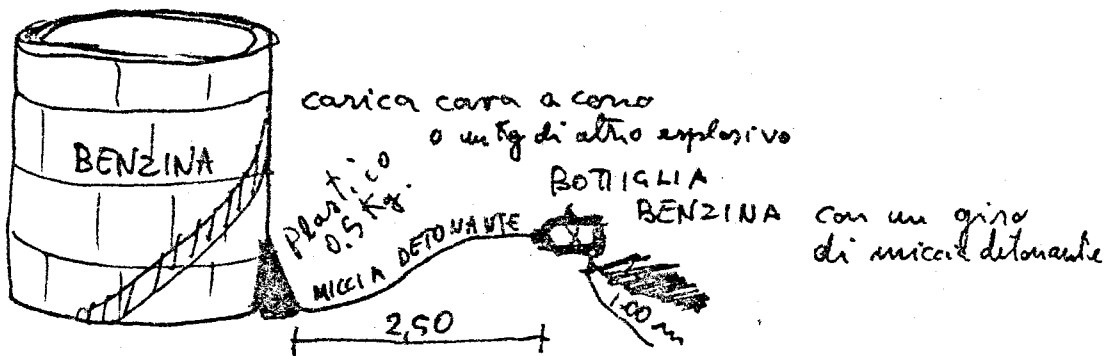 BENZINA
carica cava a cono
o un Kg di altro esplosivo
Plastico
0.5 Kg.
MICCIA DETONANTE
2,50
BOTTIGLIA
BENZINA con un giro
di miccia detonante
1.00 m